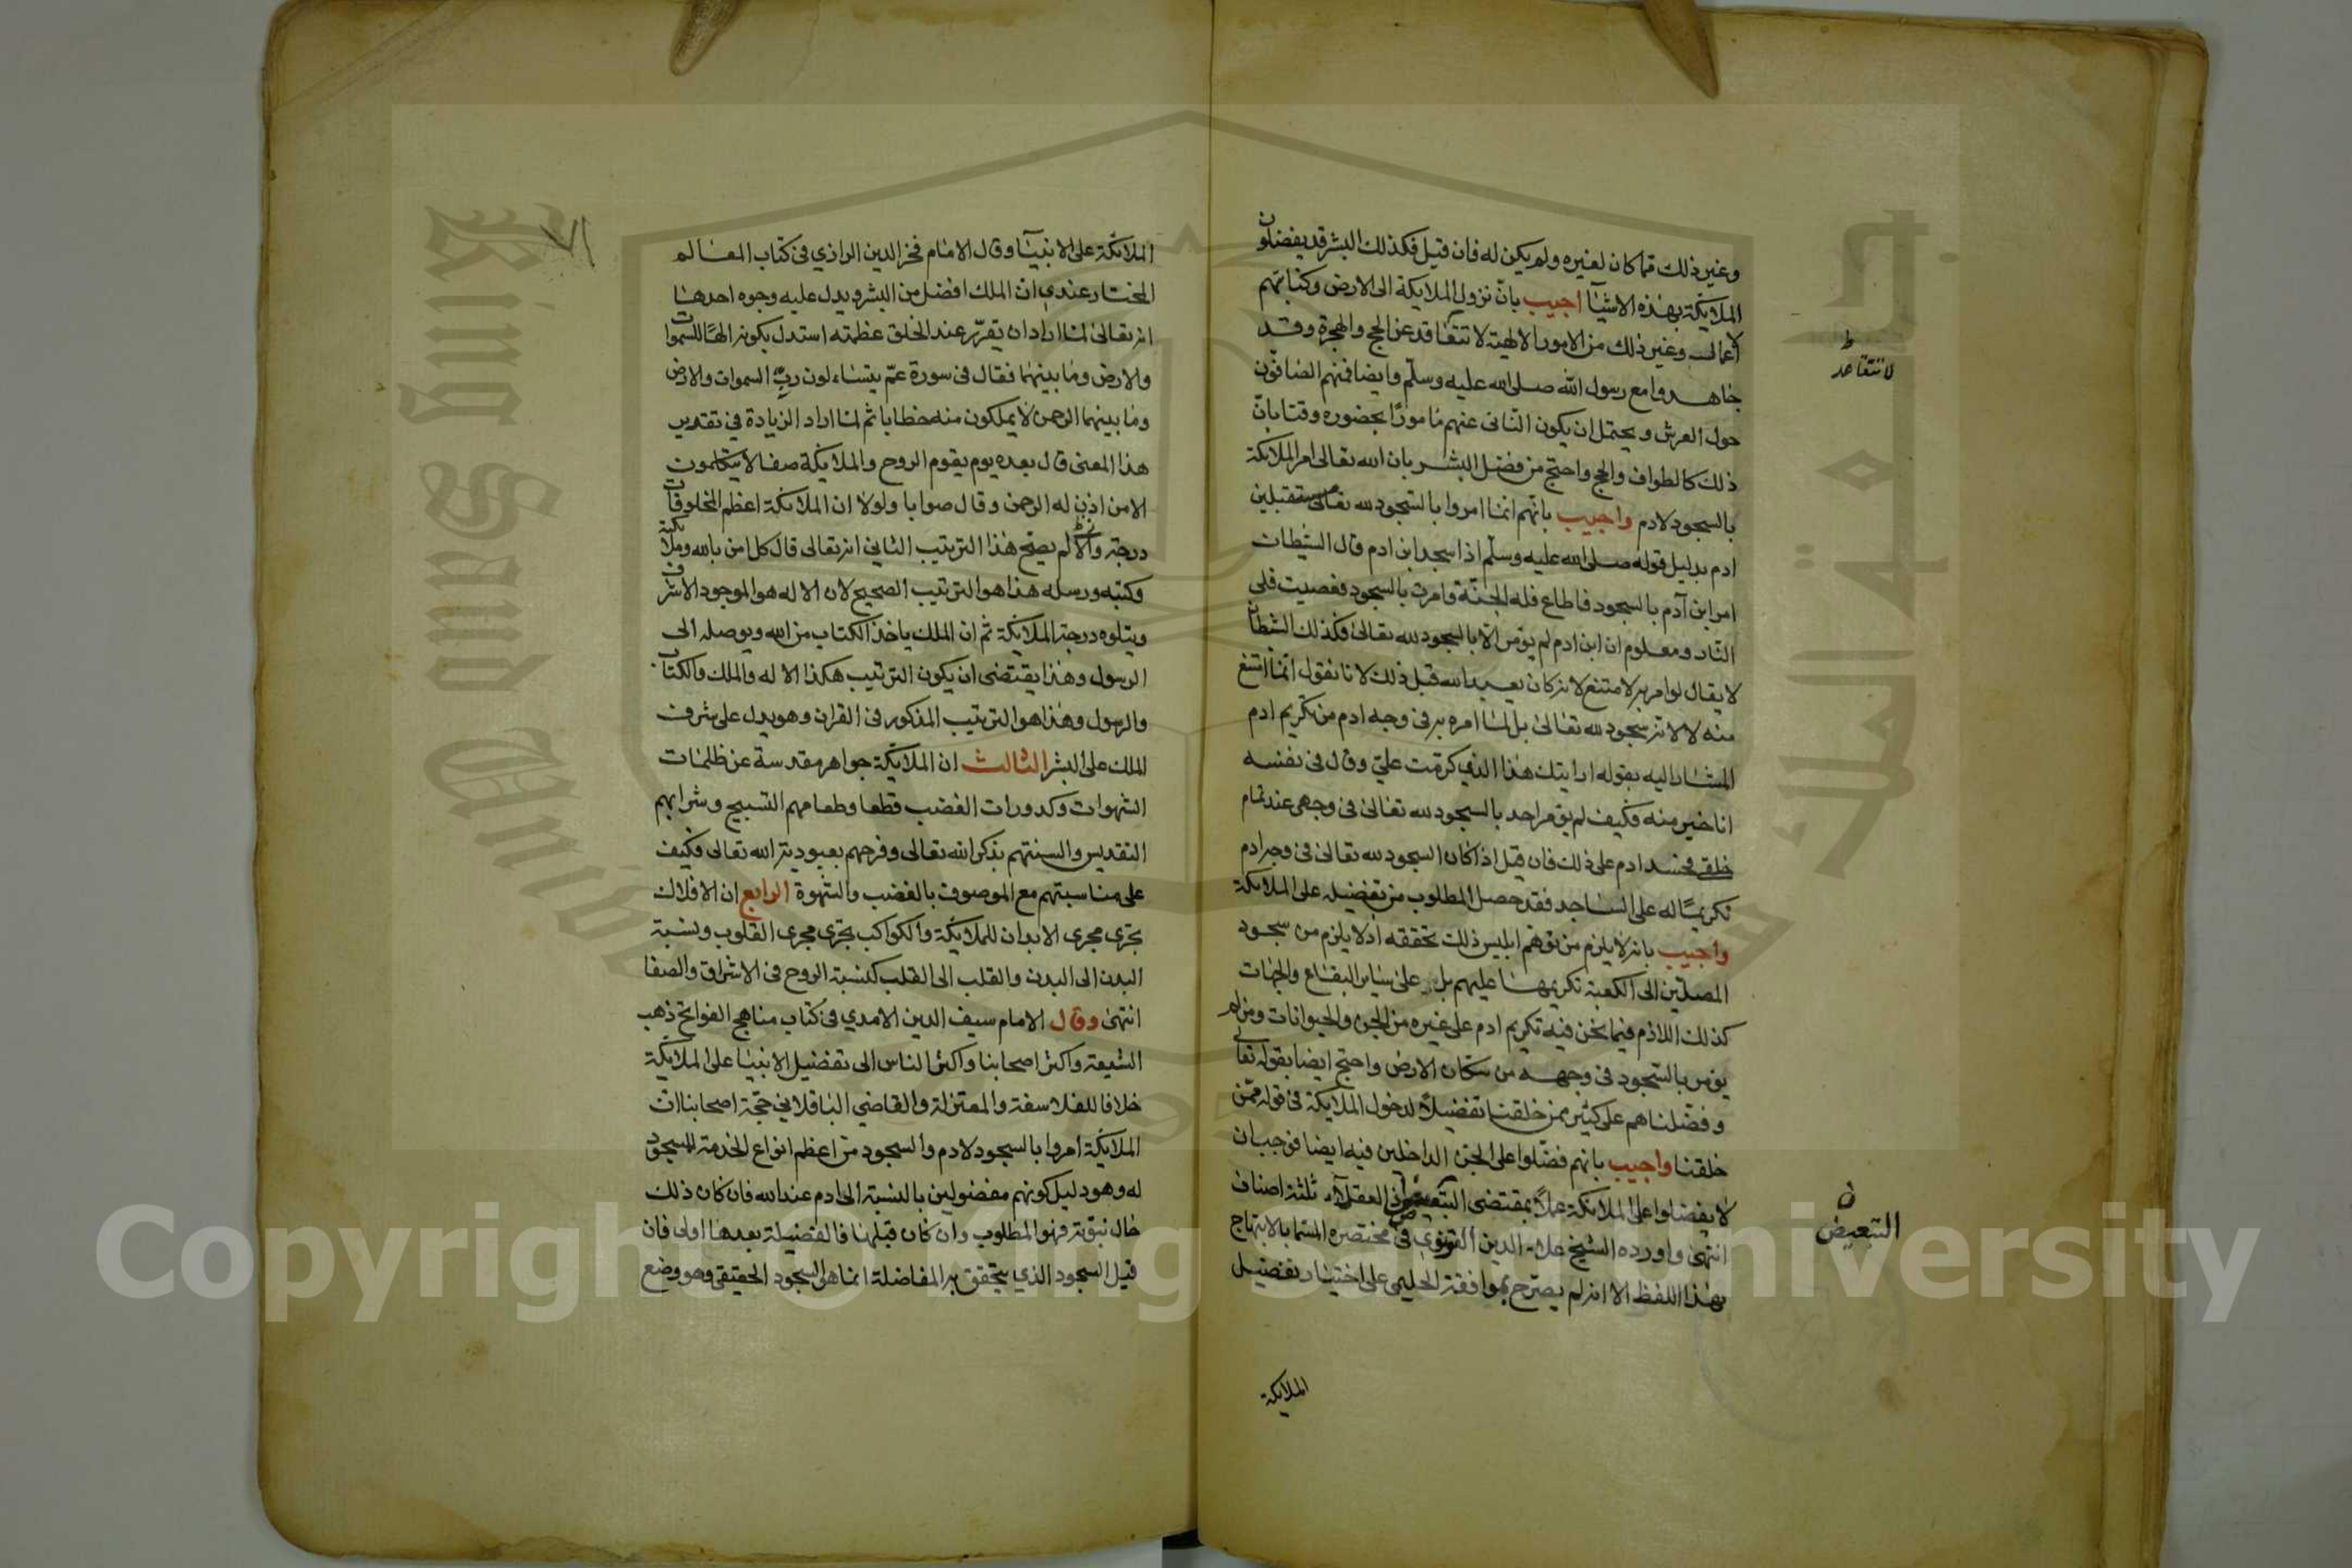 وغير ذلك مما كان لغيره ولم يكن له فان قيل فكذلك البشر قد يفضلون
الملائكة بهذه الاشيآ اجيب بانّ نزول الملايكة الى الارض وكتابتهم
لاعمالـ وغير ذلك من الامور الالهية لا تتقاقد عن الحج والهجرة وقـد
جاهـدوا مع رسول الله صلى الله عليه وسلّم وايضا فمنهم الصافّون
حول العرش ويحتمل ان يكون الثانى عنهم مامورًا بحضوره وقتا بانّ
ذلك كالطواف والحج واحتج من فضل البشـر بان الله تعالى امر الملايكة
بالسجود لادم واجيب بانهم انما امروا بالسجود لله تعالى مستقبلين
ادم بدليل قوله صلى الله عليه وسلّم اذا سجد ابن ادم قال الشيطان
امر ابن آدم بالسجود فاطاع فله الجنّة وامرت بالسجود فعصيت فلى
النّار ومعلوم ان ابن ادم لم يؤمر الا بالسجود لله تعالى فكذلك الشطان
لا يقال لو امر به لا متنع لانه كان يعبد الله قبل ذلك لانا نقول انما امتنع
منه لا لانه سجود لله تعالى بل لما امره به فى وجه ادم من تكريم ادم
المشار اليه بقوله ارايتك هذا الذي كرمت عليّ وقال فى نفسه
انا خير منه فكيف لم يؤمر احد بالسجود لله تعالى فى وجهى عند تمام
خلقى فحسد ادم على ذلك فان قيل اذا كان السجود لله تعالى فى وجه ادم
تكريمًا له على الساجد فقد حصل المطلوب من تفضيله على الملايكة
واجيب بانه لا يلزم من توهّم ابليس ذلك تحققه اذ لا يلزم من سجـود
المصلّين الى الكعبة تكريمهـا عليهم بل على ساير البقاع والجهات
كذلك اللازم فيما نحن فيه تكريم ادم على غيره من الجن والحيوانات ومن لم
يؤمر بالسجود فى وجهـه من سكّان الارض واحتج ايضا بقوله تعالى
وفضّلناهم على كثير ممن خلقنا تفضيلًا لدخول الملايكة فى قوله ممّن
خلقنا واجيب بانهم فضّلوا على الجن الداخلين فيه ايضا فوجب ان
لا يفضلوا على الملايكة عملًا بمقتضى التبعيض ان العقلآء ثلثة اصناف
انتهى واورده الشيخ علاء الدين القونوي فى مختصره المسمّا بالابتهاج
بهذا اللفظ الا انه لم يصرّح بموافقة الحليمى على اختيار تفضيل
لا تتقاعد
ط
ن
التبعيض
الملايكة
٧١
الملائكة على الانبيآ وقال الامام فخر الدين الرازي فى كتاب المعـالم
المختار عندي ان الملك افضل من البشر ويدل عليه وجوه احدهـا
انه تعالى لما اراد ان يقرّر عند الخلق عظمته استدل بكونه الهًا للسموات
والارض وما بينهما فقال فى سورة عمّ يتساءلون ربّ السموات والارض
وما بينهما الرحمن لا يملكون منه خطابا ثم لما اراد الزيادة في تقدير
هذا المعنى قال بعده يوم يقوم الروح والملايكة صفا لا يتكلمون
الا من اذن له الرحمن وقال صوابا ولولا ان الملائكة اعظم المخلوقات
درجة والّا لم يصح هذا الترتيب الثاني انه تعالى قال كل امن بالله وملايكته
وكتبه ورسله هذا هو الترتيب الصحيح لان الاله هو الموجود الاشرف
ويتلوه درجة الملائكة ثم ان الملك ياخذ الكتاب من الله ويوصله الى
الرسول وهذا يقتضى ان يكون الترتيب هكذا الاله والملك والكتاب
والرسول وهذا هو الترتيب المذكور فى القران وهو يدل على شرف
الملك على البشر الثالث ان الملايكة جواهر مقدسة عن ظلمات
الشهوات وكدورات الغضب قطعا وطعامهم التسبيح وشرابهم
التقديس والسنتهم بذكر الله تعالى وفرحهم بعبودية الله تعالى فكيف
على مناسبتهم مع الموصوف بالغضب والشهوة الرابع ان الافلاك
تجرى مجرى الابدان للملايكة والكواكب تجرى مجرى القلوب ونسبة
البدن الى البدن والقلب الى القلب كنسبة الروح فى الاشراق والصفا
انتهى وقال الامام سيف الدين الامدي فى كتاب مناهج الفوائح ذهب
الشيعة واكثر اصحابنا واكثر الناس الى تفضيل الانبيا على الملايكة
خلافا للفلاسفة والمعتزلة والقاضي الباقلاني حجّة اصحابنا ان
الملائكة امروا بالسجود لادم والسجود من اعظم انواع الخدمة للسجود
له وهو دليل كونهم مفضولين بالنسبة الى ادم عند الله فان كان ذلك
حال نبوّته فهو المطلوب وان كان قبلها فالفضيلة بعدها اولى فان
قيل السجود الذي يتحقق به المفاضلة انما هى السجود الحقيقى وهو وضع
Copyright © King Saud University
King Saud University
جامعة الملك
1957